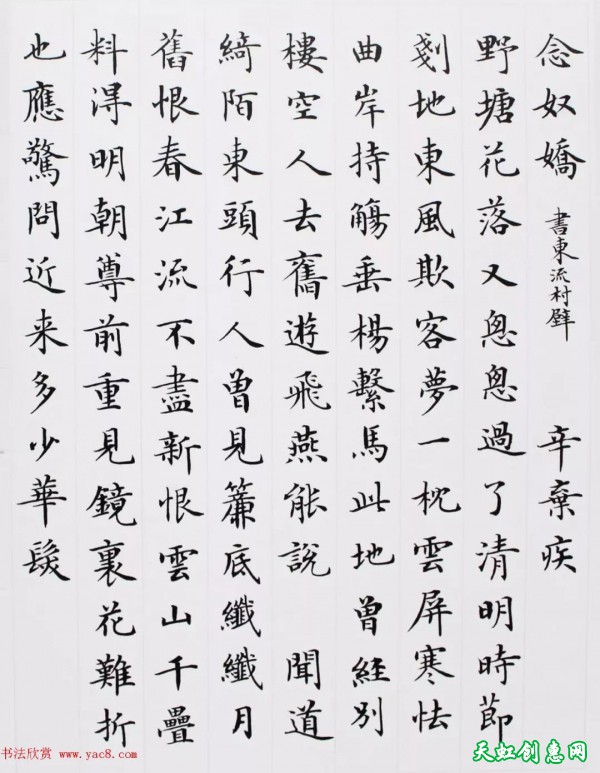 念奴嬌 書東流村壁 辛棄疾
野塘花落又悤悤過了清明時節
剗地東風欺客夢一枕雲屏寒怯
曲岸持觴垂楊繫馬此地曾經別
樓空人去舊遊飛燕能說 聞道
綺陌東頭行人曾見簾底纖纖月
舊恨春江流不盡新恨雲山千疊
料得明朝尊前重見鏡裏花難折
也應驚問近来多少華髮
书法欣赏 www.yac8.com
天虹创惠网